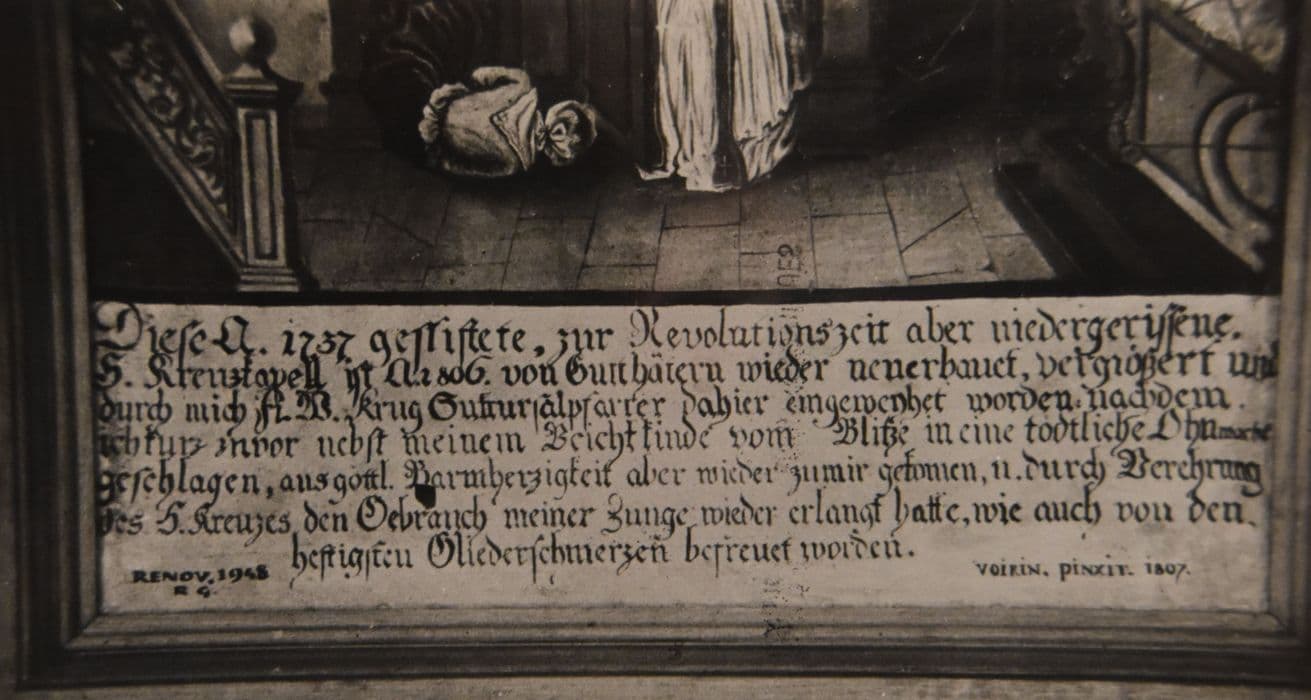 Diese A. 1737 gestiftete, zur Revolutionszeit aber niedergerissene.
H. Kreuzkapell ist A. 1806. von Gutthätern wieder neuerbauet, vergrößert und
durch mich A. W. Krug Sukursalpfarrer dahier eingeweyhet worden. nachdem
ich kurz zuvor nebst meinem Beichtkinde vom Blitze in eine todtliche Ohnmacht
geschlagen, aus göttl. Barmherzigkeit aber wieder zu mir gekomen, u. durch Verehrung
des H. Kreuzes den Gebrauch meiner Zunge wieder erlangt hatte, wie auch von den
heftigsten Gliederschmerzen befreuet worden.
RENOV. 1948
R G.
VOIRIN. PINXIT. 1807.